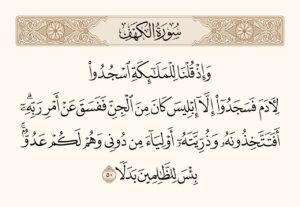 سُورَةُ الكَهۡفِ
وَإِذۡ قُلۡنَا لِلۡمَلَٰٓئِكَةِ ٱسۡجُدُواْ
لِأٓدَمَ فَسَجَدُوٓاْ إِلَّآ إِبۡلِيسَ كَانَ مِنَ ٱلۡجِنِّ فَفَسَقَ عَنۡ أَمۡرِ رَبِّهِۦٓۗ
أَفَتَتَّخِذُونَهُۥ وَذُرِّيَّتَهُۥٓ أَوۡلِيَآءَ مِن دُونِي وَهُمۡ لَكُمۡ عَدُوُّۢۚ
بِئۡسَ لِلظَّٰلِمِينَ بَدَلٗا ٥٠